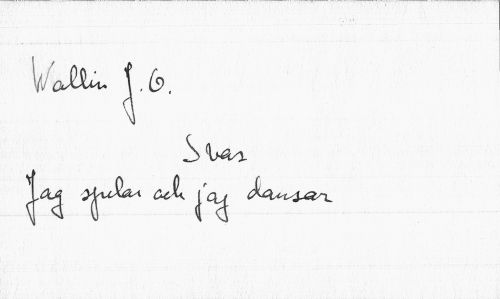 Wallin J. O.
Svar
Jag spelar och jag dansar